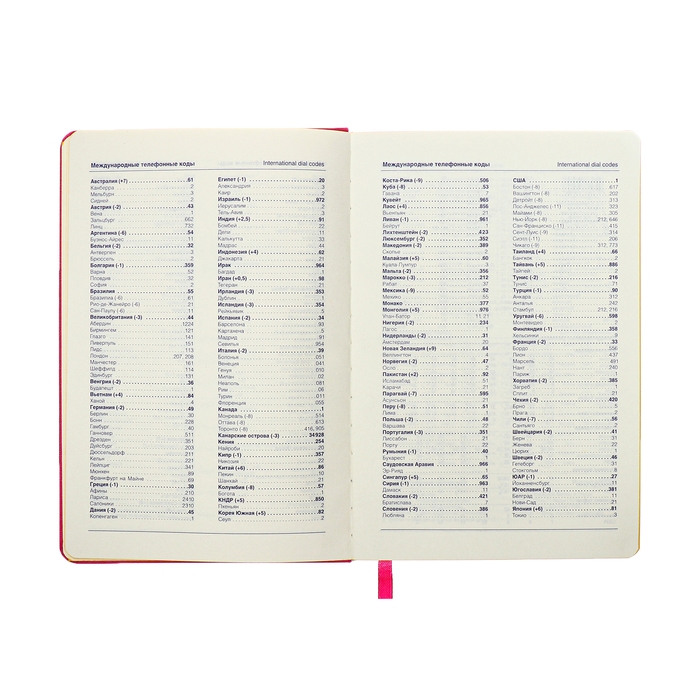 Международные телефонные коды International dial codes
Австралия (+7) 61
Канберра 2
Мельбурн 3
Сидней 2
Австрия (-2) 43
Вена 1
Зальцбург 662
Линц 732
Аргентина (-6) 54
Буэнос-Айрес 11
Бельгия (-2) 32
Антверпен 3
Брюссель 2
Болгария (-1) 359
Варна 52
Пловдив 32
София 2
Бразилия 55
Бразилиа (-6) 61
Рио-де-Жанейро (-6) 21
Сан-Паулу (-6) 11
Великобритания (-3) 44
Абердин 1224
Бирмингем 121
Глазго 141
Ливерпуль 151
Лидс 113
Лондон 207, 208
Манчестер 161
Шеффилд 114
Эдинбург 131
Венгрия (-2) 36
Будапешт 1
Вьетнам (+4) 84
Ханой 4
Германия (-2) 49
Берлин 30
Бонн 228
Гамбург 40
Ганновер 511
Дрезден 351
Дуйсбург 203
Дюссельдорф 211
Кельн 221
Лейпциг 341
Мюнхен 89
Франкфурт на Майне 69
Греция (-1) 30
Афины 210
Лариса 2410
Салоники 2310
Дания (-2) 45
Копенгаген 1
Египет (-1) 20
Александрия 3
Каир 2
Израиль (-1) 972
Иерусалим 2
Тель-Авив 3
Индия (+2,5) 91
Бомбей 22
Дели 11
Калькутта 33
Мадрас 44
Индонезия (+4) 62
Джакарта 21
Ирак 964
Багдад 1
Иран (+0,5) 98
Тегеран 21
Ирландия (-3) 353
Дублин 1
Исландия (-3) 354
Рейкьявик 5
Испания (-2) 34
Барселона 93
Картахена 5
Мадрид 91
Севилья 954
Италия (-2) 39
Болонья 051
Венеция 041
Генуя 010
Милан 02
Неаполь 081
Рим 06
Турин 011
Флоренция 055
Канада 1
Монреаль (-8) 514
Оттава (-8) 613
Торонто (-8) 416, 905
Канарские острова (-3) 34928
Кения 254
Найроби 20
Кипр (-1) 357
Никозия 22
Китай (+6) 86
Пекин 10
Шанхай 21
Колумбия (-8) 57
Богота 1
КНДР (+5) 850
Пхеньян 2
Корея Южная (+5) 82
Сеул 2
Международные телефонные коды International dial codes
Коста-Рика (-9) 506
Куба (-8) 53
Гавана 7
Кувейт 965
Лаос (+4) 856
Вьентьян 21
Ливан (-1) 961
Бейрут 1
Лихтенштейн (-2) 423
Люксембург (-2) 352
Македония (-2) 389
Скопье 2
Малайзия (+5) 60
Куала Лумпур 3
Мальта (-2) 356
Марокко (-3) 212
Рабат 37
Мексика (-9) 52
Мехико 55
Монако 377
Монголия (+5) 976
Улан-Батор 11, 21
Нигерия (-2) 234
Лагос 1
Нидерланды (-2) 31
Амстердам 20
Новая Зеландия (+9) 64
Веллингтон 4
Норвегия (-2) 47
Осло 2
Пакистан (+2) 92
Исламабад 51
Карачи 21
Парагвай (-7) 595
Асунсьон 21
Перу (-8) 51
Лима 1
Польша (-2) 48
Варшава 22
Португалия (-3) 351
Лиссабон 21
Порту 22
Румыния (-1) 40
Бухарест 1
Саудовская Аравия 966
Эр-Рияд 1
Сингапур (+5) 65
Сирия (-1) 963
Дамаск 11
Словакия (-2) 421
Братислава 7
Словения (-2) 386
Любляна 1
США 1
Бостон (-8) 617
Вашингтон (-8) 202
Детройт (-8) 313
Лос-Анджелес (-11) 323
Майами (-8) 305
Нью-Йорк (-8) 212, 646
Сан-Франциско (-11) 415
Сент-Луис (-9) 314
Сиэтл (-11) 206
Чикаго (-9) 312, 773
Таиланд (+4) 66
Бангкок 2
Тайвань (+5) 886
Тайпей 2
Тунис (-2) 216
Тунис 71
Турция (-1) 90
Анкара 312
Анталья 242
Стамбул 212, 216
Уругвай (-6) 598
Монтевидео 2
Финляндия (-1) 358
Хельсинки 9
Франция (-2) 33
Бордо 556
Лион 437
Марсель 491
Нант 240
Париж 1
Хорватия (-2) 385
Загреб 1
Сплит 21
Чехия (-2) 420
Брно 5
Прага 2
Чили (-7) 56
Сантьяго 2
Швейцария (-2) 41
Берн 31
Женева 22
Цюрих 1
Швеция (-2) 46
Гетеборг 31
Стокгольм 8
ЮАР (-1) 27
Иоханнесбург 11
Югославия (-2) 381
Белград 11
Нови-Сад 21
Япония (+6) 81
Токио 3